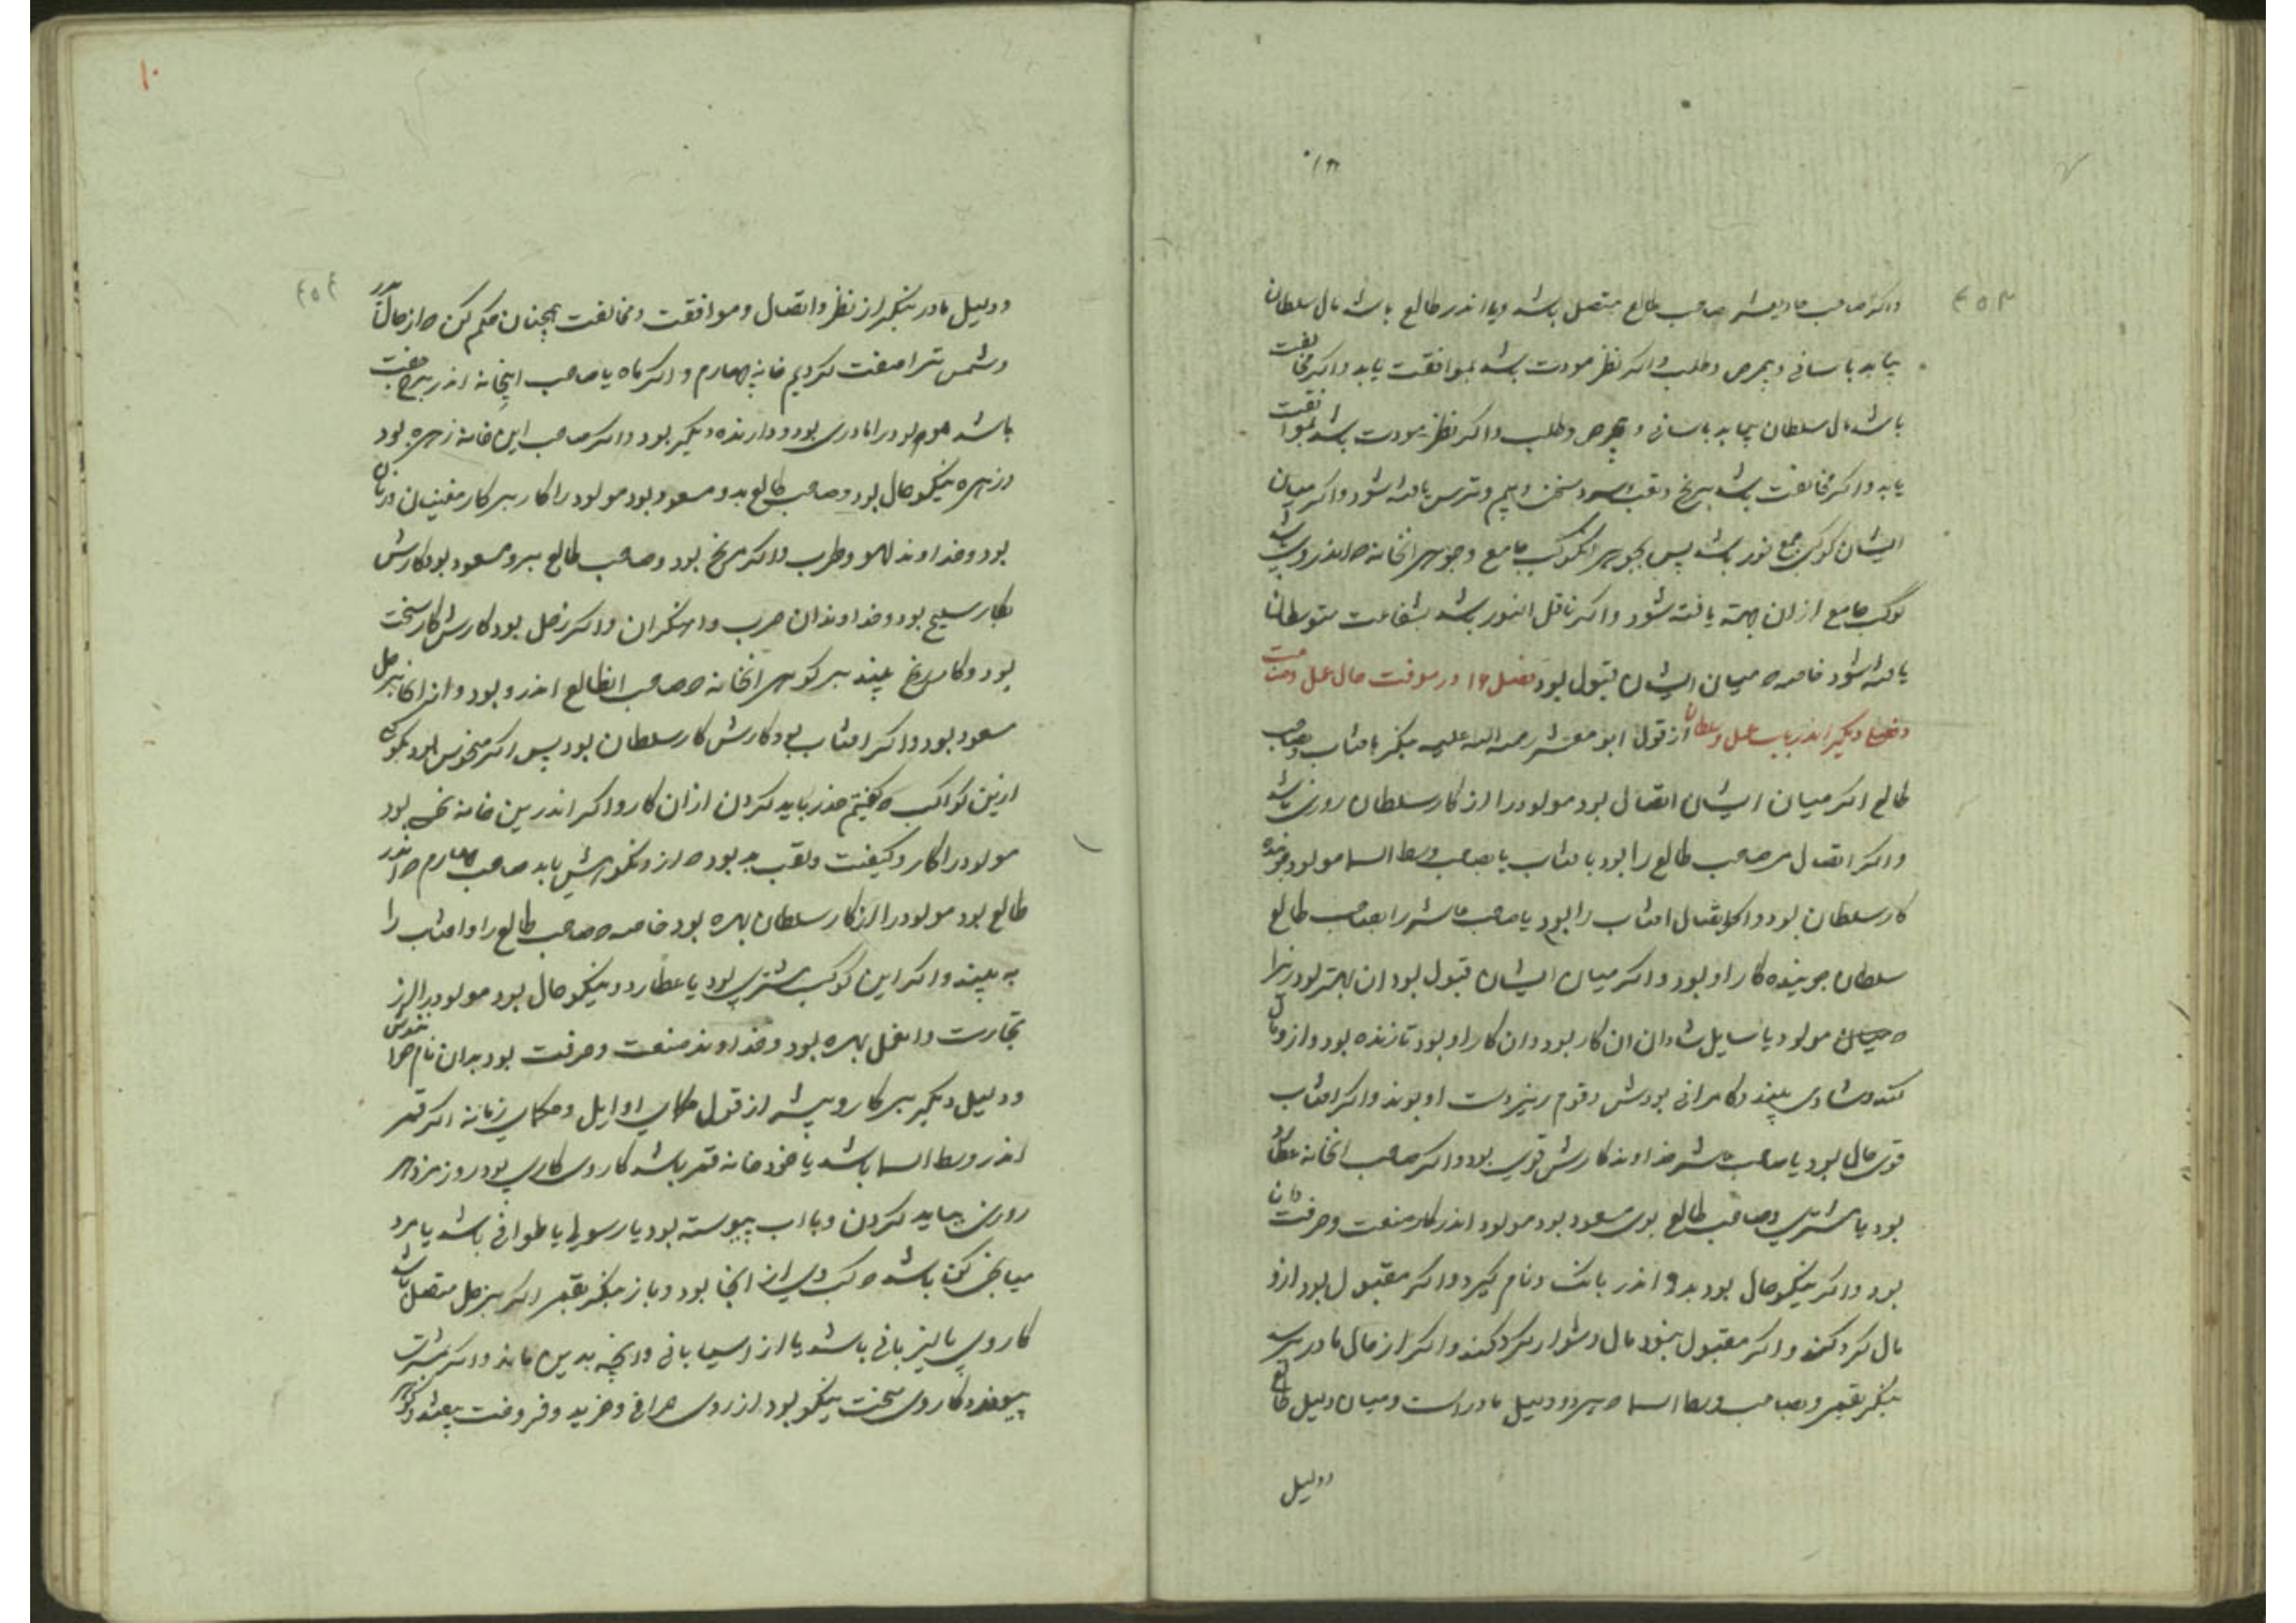 واکر صاحب حادیعشر صاحب طالع متصل باشد ویا اندر طالع باشد مال سلطان
بیابد باسانی وبحرص وطلب واکر نظر مودت باشد بموافقت یابد واکر مخالفت
باشد مال سلطان بیابد باسانی وبحرص وطلب واکر نظر مودت باشد بموافقت
یابد واکر مخالفت باشد برنج وتعب وسخن وبیم وترس یافته شود واکر میان
ایشان کوکبی جمع نور باشد پس بجوهر انکوکب جامع وجوهر انخانه که اندروی باشد
کوکب جامع ازان جهة یافته شود واکر ناقل النور باشد بشفاعت متوسطان
یافته شود خاصه که میان ایشان قبول بود فصل ۱۶ در معرفت حال عمل
دیکر اندر باب عمل وسلطان از قول ابو معشر رحمة الله علیه بنکر بافتاب وبصاحب
طالع اکر میان ایشان اتصال بود مولود را از کار سلطان روزی باشد
واکر اتصال مر صاحب طالع را بود بافتاب یا بصاحب وسط السما مولود جوینده
کار سلطان بود واکر اتصال افتاب را بود یا صاحب عاشر را بصاحب طالع
سلطان جوینده کار او بود واکر میان ایشان قبول بود ان بهتر بود زیرا
که مولود یا سایل شادان ان کار بود وان کار او بود تا زنده بود وازو مال
کند وشادی بیند وکامرانی بودش وقوم زیردست او بوند واکر افتاب
قوی حال بود یا صاحب عاشر خداوند کارش قوی بود واکر صاحب انخانه عطارد
بود یا مشتری وصاحب طالع بوی مسعود بود مولود اندر کار صنعت وحرفت دان
بود واکر نیکوحال بود بدو اندر بانک ونام کیرد واکر مقبول بود ازو
مال کرد کند واکر مقبول نبود مال دشوار کرد کند واکر از حال مادر پرسد
بنکر بقمر وبصاحب وسط السما که هر دو دلیل مادر است ومیان دلیل طالع
ودلیل
ودلیل مادر بنکر از نظر واتصال وموافقت ومخالفت همچنان حکم کن که از حال پدر
وشمس ترا صفت کردیم خانه چهارم واکر ماه یا صاحب اینخانه اندر برج جفت
باشد مولود را مادری بود ودارنده دیکر بود واکر صاحب این خانه زهره بود
وزهره نیکوحال بود وصاحب طالع بدو مسعود بود مولود را کار بر کار مغنیان وزنان
بود وخداوند لهو وطرب واکر مریخ بود وصاحب طالع برو مسعود بود کارش
بکار سلیح بود وخداوندان حرب واهنکران واکر زحل بود کارش کار سخت
بود وکار برنج بیند بر کوهر انخانه که صاحب الطالع اندرو بود وازانجا بزحل
مسعود بود واکر افتاب بود کارش کار سلطان بود پس اکر منحوس بود بکوکبی
ازین کواکب که کفتیم حذر باید کردن ازان کار واکر اندرین خانه نحس بود
مولود را کار وکیفت وتعب بد بود که ازو نکوهش یابد صاحب چهارم که اندر
طالع بود مولود را از کار سلطان بهره بود خاصه که صاحب طالع را وافتاب را
به بیند واکر این کوکب مشتری بود یا عطارد ونیکوحال بود مولود را از
تجارت بهره بود وخداوند صنعت وحرفت بود بدان نام
ودلیل دیکر بر کار وپیشه از قول حکمای اوایل وحکمای زمانه اکر قمر
اندر وسط السما باشد یا خود خانه قمر باشد کار وی کاری بود روز مزد هر
روزی بباید کردن وبا اب پیوسته بود یا رسولی یا طوافی باشد یا مرد
میانجی کن باشد که کسب وی از انجا بود وباز بنکر بقمر اکر بزحل متصل باشد
کار وی پالیزبانی باشد یا از اسیابانی وانچه بدین ماند واکر بمشتری
پیوندد کار وی سخت نیکو بود از روی صرافی وخرید وفروخت